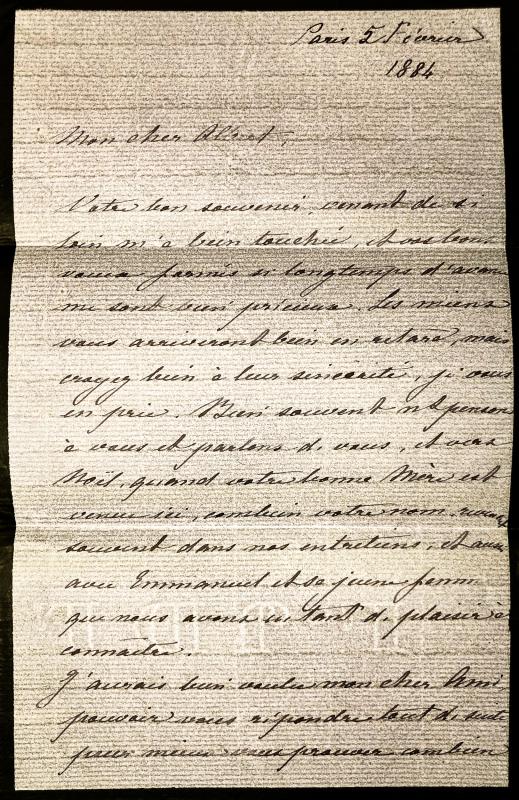 Paris 5 Février
1884
Mon cher Albert,
Votre bon souvenir, venant de si
loin m'a bien touchée, et vos bons
vœux formés si longtemps d'avance
me sont bien précieux. Les miens
vous arriveront bien en retard, mais
croyez bien à leur sincérité, je vous
en prie. Bien souvent ns pensons
à vous et parlons de vous, et vers
Noël, quand votre bonne Mère est
venue ici, combien votre nom
souvent dans nos entretiens, et aussi
avec Emmanuel et sa jeune femme
que nous avons eu tant de plaisir à
connaître.
J'aurais bien voulu mon cher Ami
pouvoir vous répondre tout de suite
pour mieux vous prouver combien